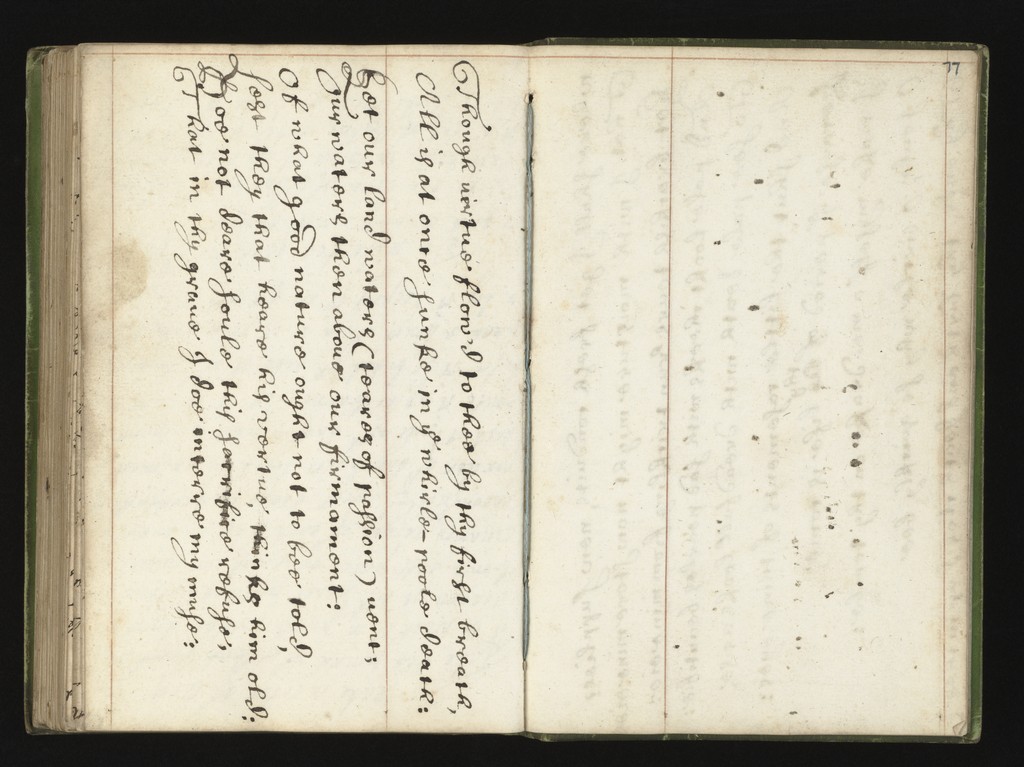 Though uirtue flow'd to thee by thy first breath,
All is at once sunke in yͤ whirle-poole death:
Let our land waters (teares of passion) uent;
Our waters then aboue our firmament:
Of what good nature ought not to bee told,
Lest they that heare his vertue, thinke him old:
Doe not deare soule this sacrifice refuse,
That in thy graue I doe interre my muse:
77